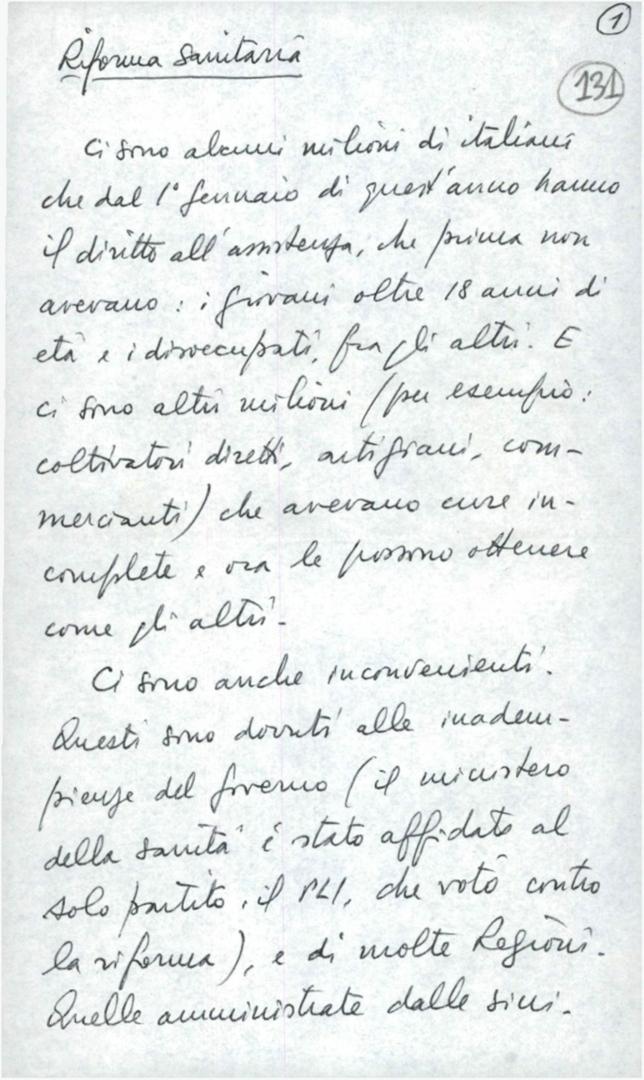 1
Riforma Sanitaria
131
Ci sono alcuni milioni di italiani
che dal 1° Gennaio di quest'anno hanno
il diritto all'assistenza, che prima non
avevano: i giovani oltre 18 anni di
età e i disoccupati, fra gli altri. E
ci sono altri milioni (per esempio:
coltivatori diretti, artigiani, com-
mercianti) che avevano cure in-
complete e ora le possono ottenere
come gli altri.
Ci sono anche inconvenienti.
Questi sono dovuti alle inadem-
pienze del governo (il ministero
della sanità è stato affidato al
solo partito, il PLI, che votò contro
la riforma), e di molte Regioni.
Quelle amministrate dalle sini-